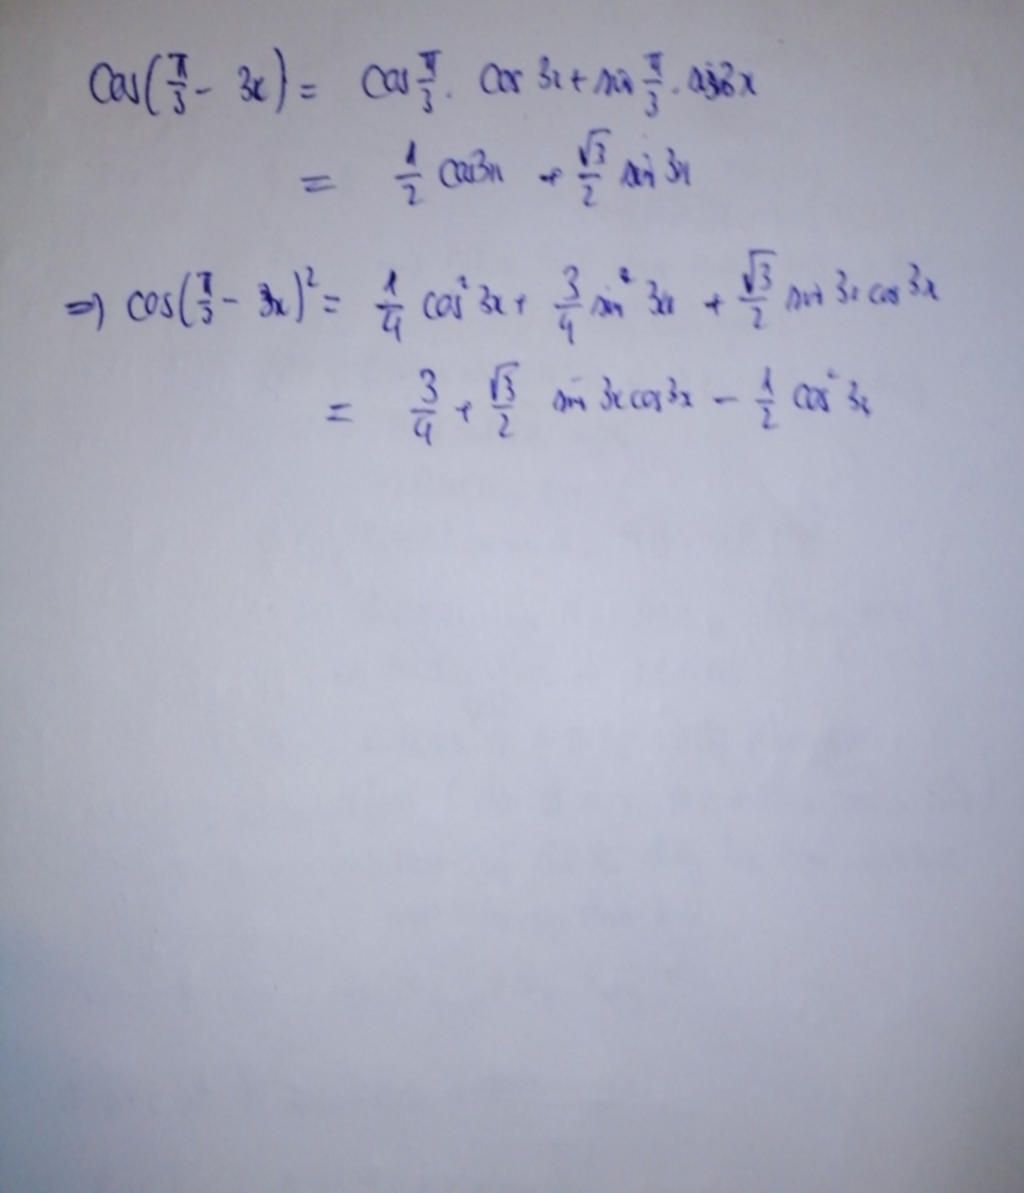 cos(π/3 - 3x) = cos π/3 . cos 3x + sin π/3 . sin3x
= 1/2 cos3x + √3/2 sin 3x
⇒) cos(π/3 - 3x)² = 1/4 cos² 3x + 3/4 sin² 3x + √3/2 sin 3x cos 3x
= 3/4 + √3/2 sin 3x cos 3x - 1/2 cos² 3x